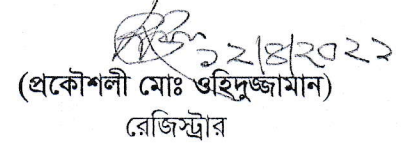 ১২/৪/২০২২
(প্রকৌশলী মোঃ ওহিদুজ্জামান)
রেজিস্ট্রার